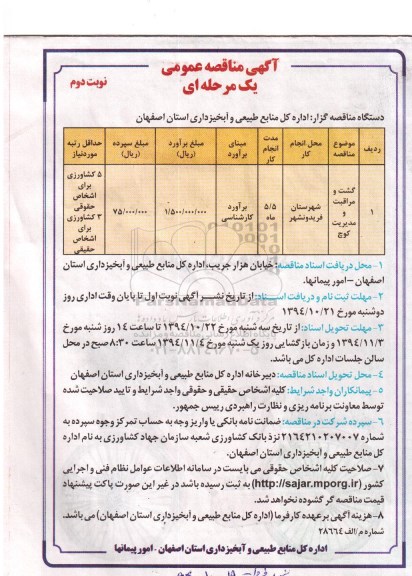 آگهی مناقصه عمومی
یک مرحله ای
نوبت دوم
دستگاه مناقصه گزار: اداره کل منابع طبیعی و آبخیزداری استان اصفهان
ردیف	موضوع مناقصه	محل انجام کار	مدت انجام کار	مبنای برآورد	مبلغ برآورد (ریال)	مبلغ سپرده (ریال)	حداقل رتبه موردنیاز
۱	گشت و مراقبت و مدیریت کوچ	شهرستان فریدونشهر	۵/۵ ماه	برآورد کارشناسی	۱/۵۰۰/۰۰۰/۰۰۰	۷۵/۰۰۰/۰۰۰	۵ کشاورزی برای اشخاص حقوقی ۳ کشاورزی برای اشخاص حقیقی
۱- محل دریافت اسناد مناقصه: خیابان هزار جریب، اداره کل منابع طبیعی و آبخیزداری استان
اصفهان – امور پیمانها.
۲- مهلت ثبت نام و دریافت اسناد: از تاریخ نشر آگهی نوبت اول تا پایان وقت اداری روز
دوشنبه مورخ ۱۳۹۴/۱۰/۲۱
۳- مهلت تحویل اسناد: از تاریخ سه شنبه مورخ ۱۳۹۴/۱۰/۲۲ تا ساعت ۱۴ روز شنبه مورخ
۱۳۹۴/۱۱/۳ و زمان بازگشایی روز یک شنبه مورخ ۱۳۹۴/۱۱/۴ ساعت ۸:۳۰ صبح در محل
سالن جلسات اداره کل می باشد.
۴- محل تحویل اسناد مناقصه: دبیرخانه اداره کل منابع طبیعی و آبخیزداری استان اصفهان
۵- پیمانکاران واجد شرایط: کلیه اشخاص حقیقی و حقوقی واجد شرایط و تایید صلاحیت شده
توسط معاونت برنامه ریزی و نظارت راهبردی رییس جمهور.
۶- سپرده شرکت در مناقصه: ضمانت نامه بانکی یا واریز وجه به حساب تمرکز وجوه سپرده به
شماره ۲۱۶۴۲۱۰۲۰۷۰۰۷ نزد بانک کشاورزی شعبه سازمان جهاد کشاورزی به نام اداره
کل منابع طبیعی و آبخیزداری استان اصفهان.
۷- صلاحیت کلیه اشخاص حقوقی می بایست در سامانه اطلاعات عوامل نظام فنی و اجرایی
کشور (http://sajar.mporg.ir) به ثبت رسیده باشد در غیر این صورت پاکت پیشنهاد
قیمت مناقصه گر گشوده نخواهد شد.
۸- هزینه آگهی برعهده کارفرما (اداره کل منابع طبیعی و آبخیزداری استان اصفهان) می باشد.
شماره م/الف ۲۸۶۶۴
اداره کل منابع طبیعی و آبخیزداری استان اصفهان - امور پیمانها